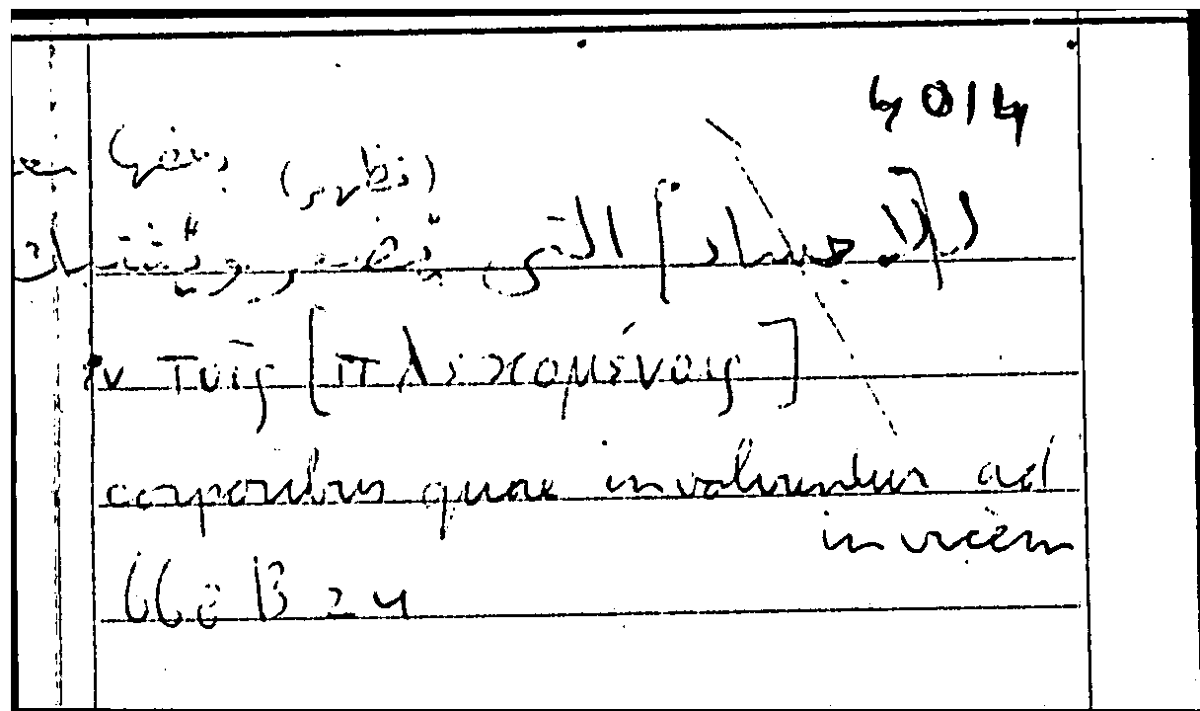 4014
(تظهر) بعضها
[الاجساد] التي تضفر وتشتبك
ν τοῖς [πλεκομένοις]
corporibus quae involvuntur ad
invicem
668 B 24